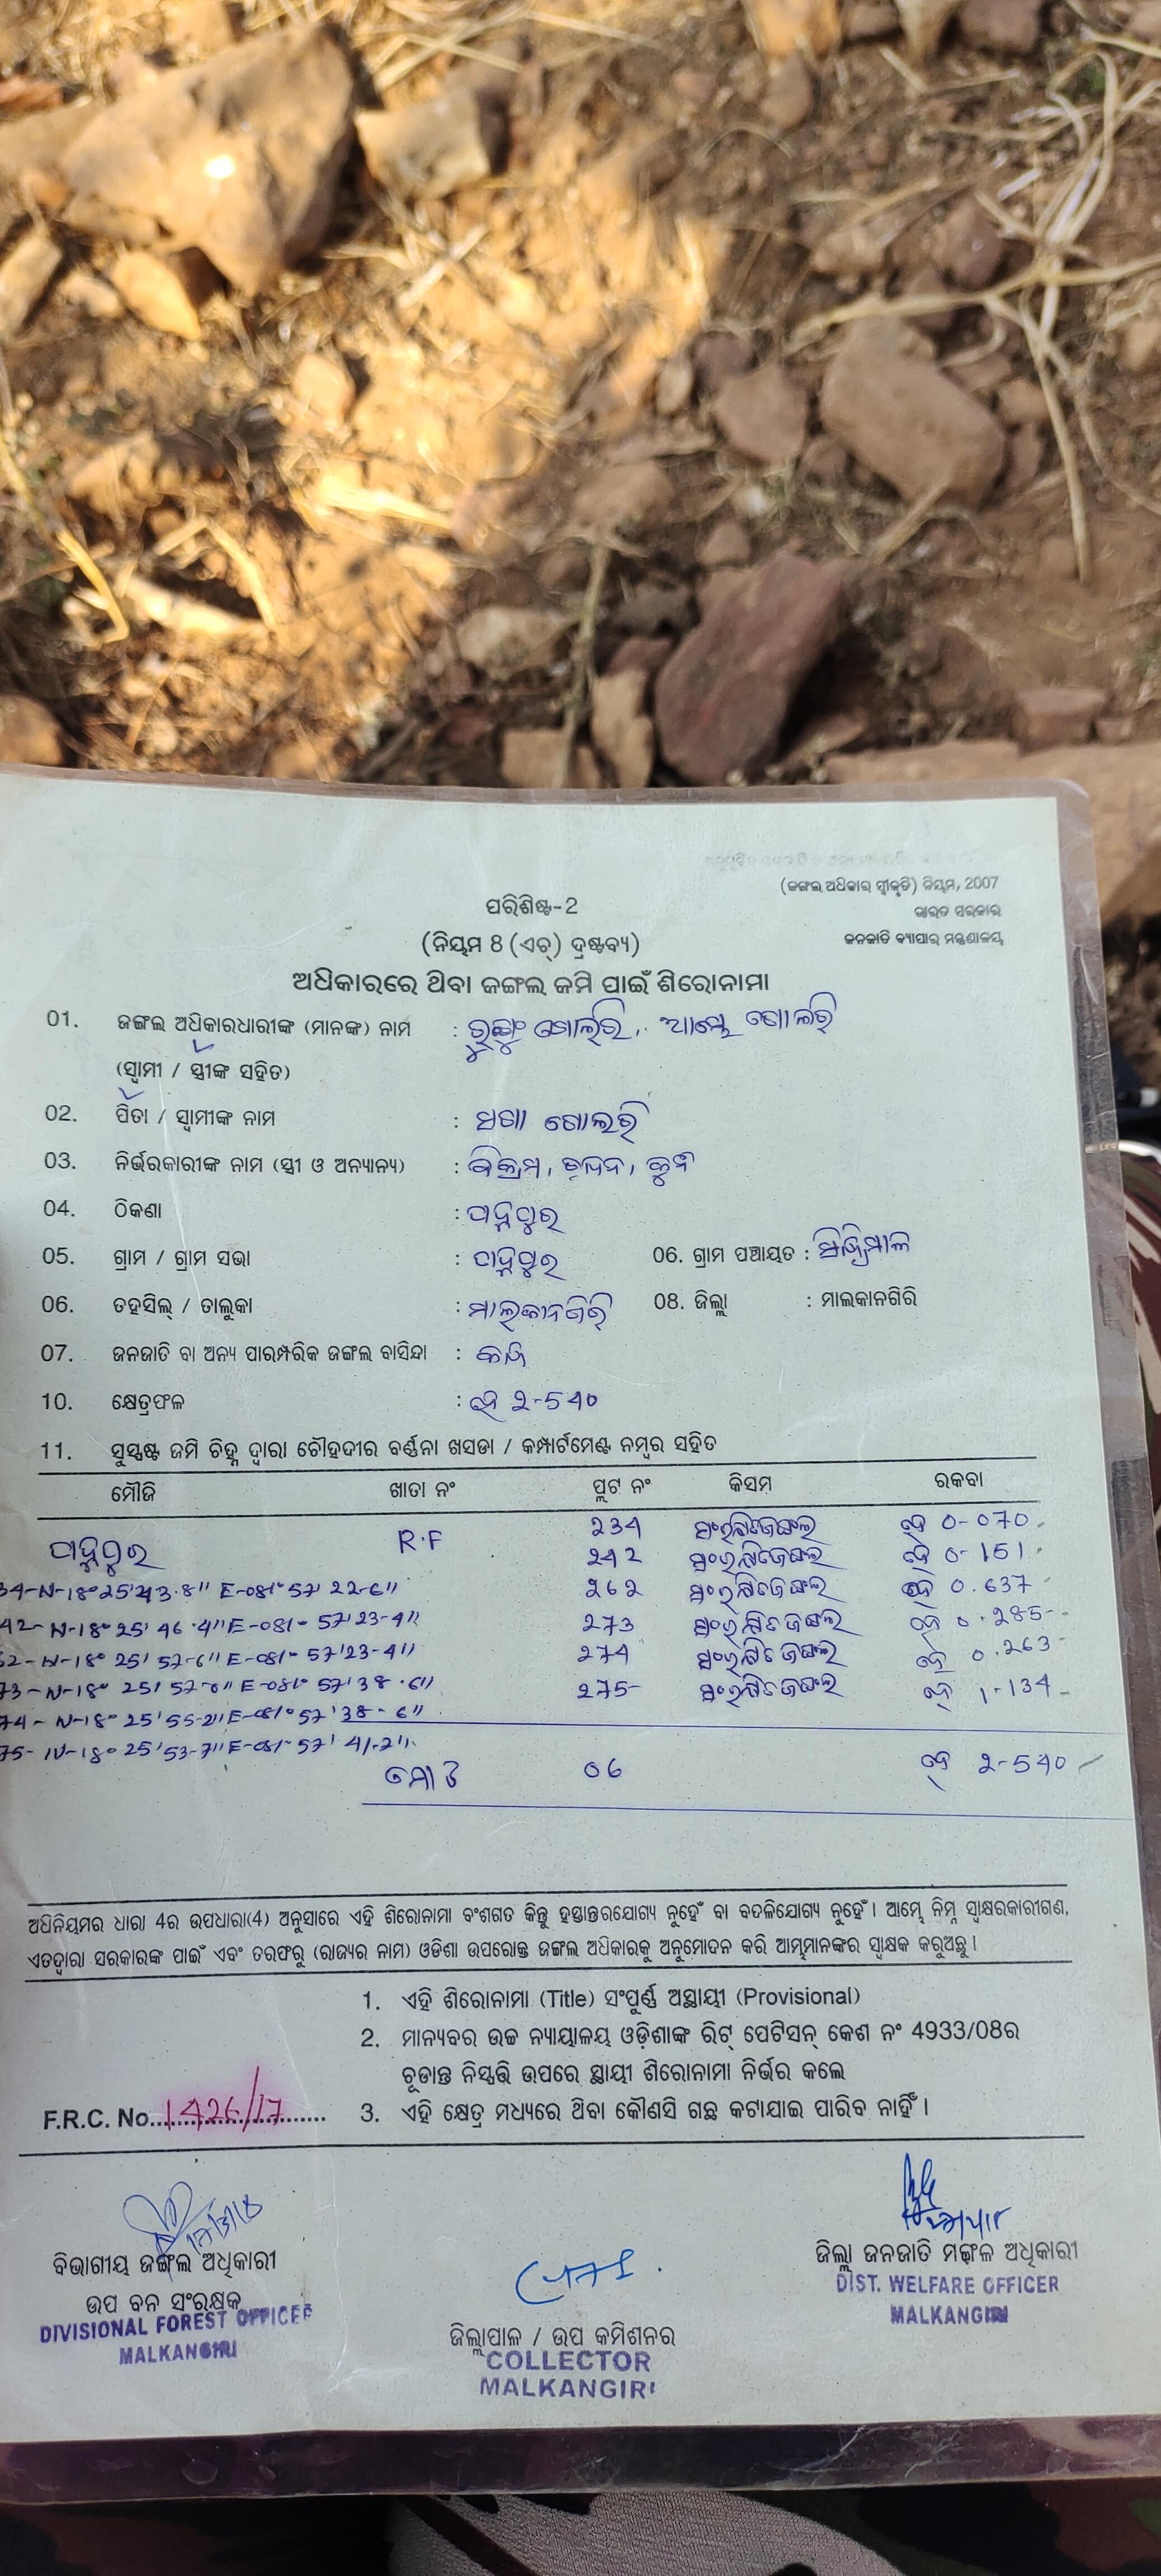 (ଜଙ୍ଗଲ ଅଧିକାର ସ୍ୱୀକୃତି) ନିୟମ, 2007
ଭାରତ ସରକାର
ଜନଜାତି ବ୍ୟାପାର ମନ୍ତ୍ରଣାଳୟ
ପରିଶିଷ୍ଟ-2
(ନିୟମ 8 (ଏଚ୍) ଦ୍ରଷ୍ଟବ୍ୟ)
ଅଧିକାରରେ ଥିବା ଜଙ୍ଗଲ ଜମି ପାଇଁ ଶିରୋନାମା
01. ଜଙ୍ଗଲ ଅଧିକାରଧାରୀଙ୍କ (ମାନଙ୍କ) ନାମ :
(ସ୍ୱାମୀ / ସ୍ତ୍ରୀଙ୍କ ସହିତ)
02. ପିତା / ସ୍ୱାମୀଙ୍କ ନାମ :
03. ନିର୍ଭରକାରୀଙ୍କ ନାମ (ସ୍ତ୍ରୀ ଓ ଅନ୍ୟାନ୍ୟ) : ବିକ୍ରମ,
04. ଠିକଣା :
05. ଗ୍ରାମ / ଗ୍ରାମ ସଭା : 06. ଗ୍ରାମ ପଞ୍ଚାୟତ :
06. ତହସିଲ୍ / ତାଲୁକା : ମାଲକାନଗିରି 08. ଜିଲ୍ଲା : ମାଲକାନଗିରି
07. ଜନଜାତି ବା ଅନ୍ୟ ପାରମ୍ପରିକ ଜଙ୍ଗଲ ବାସିନ୍ଦା :
10. କ୍ଷେତ୍ରଫଳ : ହେ 2-540
11. ସୁସ୍ପଷ୍ଟ ଜମି ଚିହ୍ନ ଦ୍ୱାରା ଚୌହଦୀର ବର୍ଣ୍ଣନା ଖସଡା / କମ୍ପାର୍ଟମେଣ୍ଟ ନମ୍ବର ସହିତ
ମୌଜି ଖାତା ନଂ ପ୍ଲଟ ନଂ କିସମ ରକବା
R.F 234 ସଂରକ୍ଷିତ ଜଙ୍ଗଲ ହେ 0-070
242 ସଂରକ୍ଷିତ ଜଙ୍ଗଲ ହେ 0-151
34-N-18°25'43.8" E-081°57'22-6" 262 ସଂରକ୍ଷିତ ଜଙ୍ଗଲ ହେ 0.637
42-N-18°25'46.4" E-081°57'23-4" 273 ସଂରକ୍ଷିତ ଜଙ୍ଗଲ ହେ 0.285
62-N-18°25'52-6" E-081°57'23-4" 274 ସଂରକ୍ଷିତ ଜଙ୍ଗଲ ହେ 0.263
73-N-18°25'52-0" E-081°57'38.6" 275 ସଂରକ୍ଷିତ ଜଙ୍ଗଲ ହେ 1-134
74-N-18°25'55-2" E-081°57'38-6"
75-N-18°25'53-7" E-081°57'41-2"
ମୋଟ 06 ହେ 2-540
ଅଧିନିୟମର ଧାରା 4ର ଉପଧାରା(4) ଅନୁସାରେ ଏହି ଶିରୋନାମା ବଂଶଗତ କିନ୍ତୁ ହସ୍ତାନ୍ତରଯୋଗ୍ୟ ନୁହେଁ ବା ବଦଳିଯୋଗ୍ୟ ନୁହେଁ। ଆମ୍ଭେ ନିମ୍ନ ସ୍ୱାକ୍ଷରକାରୀଗଣ,
ଏତଦ୍ୱାରା ସରକାରଙ୍କ ପାଇଁ ଏବଂ ତରଫରୁ (ରାଜ୍ୟର ନାମ) ଓଡିଶା ଉପରୋକ୍ତ ଜଙ୍ଗଲ ଅଧିକାରକୁ ଅନୁମୋଦନ କରି ଆମ୍ଭମାନଙ୍କର ସ୍ୱାକ୍ଷକ କରୁଅଛୁ।
1. ଏହି ଶିରୋନାମା (Title) ସଂପୁର୍ଣ୍ଣ ଅସ୍ଥାୟୀ (Provisional)
2. ମାନ୍ୟବର ଉଚ୍ଚ ନ୍ୟାୟାଳୟ ଓଡ଼ିଶାଙ୍କ ରିଟ୍ ପେଟିସନ୍ କେଶ ନଂ 4933/08ର
ଚୂଡାନ୍ତ ନିସ୍ପତ୍ତି ଉପରେ ସ୍ଥାୟୀ ଶିରୋନାମା ନିର୍ଭର କଲେ
F.R.C. No. 1426/17 3. ଏହି କ୍ଷେତ୍ର ମଧ୍ୟରେ ଥିବା କୌଣସି ଗଛ କଟାଯାଇ ପାରିବ ନାହିଁ।
ବିଭାଗୀୟ ଜଙ୍ଗଲ ଅଧିକାରୀ
ଉପ ବନ ସଂରକ୍ଷକ
DIVISIONAL FOREST OFFICER
MALKANGIRI
ଜିଲ୍ଲାପାଳ / ଉପ କମିଶନର
COLLECTOR
MALKANGIRI
ଜିଲ୍ଲା ଜନଜାତି ମଙ୍ଗଳ ଅଧିକାରୀ
DIST. WELFARE OFFICER
MALKANGIRI